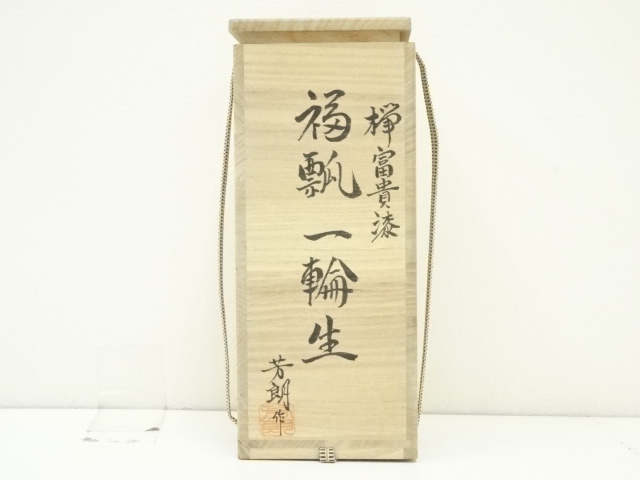 欅富貴漆
福瓢一輪生
芳朗作